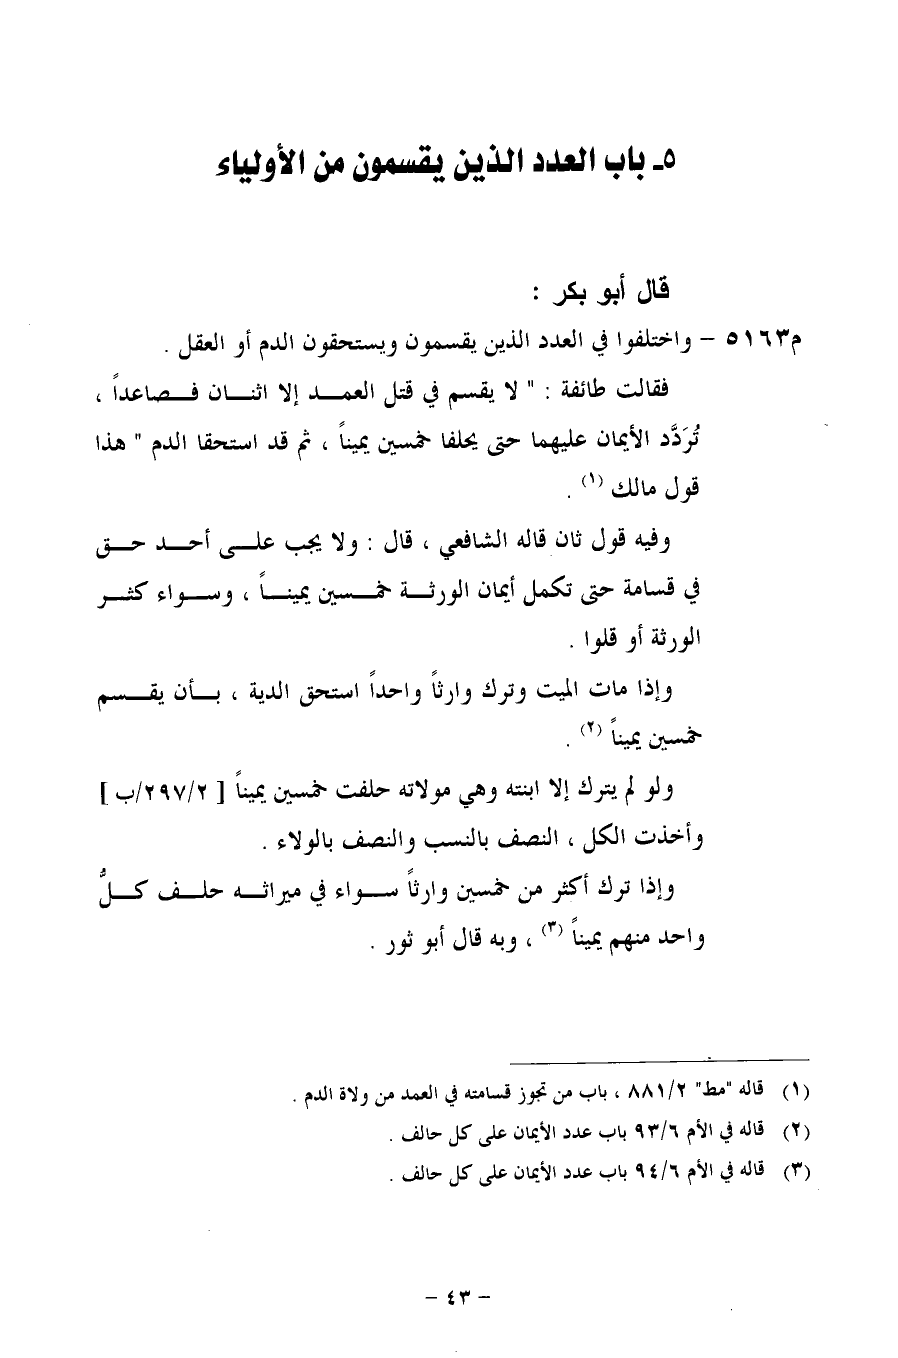 ٥ـ باب العدد الذين يقسمون من الأولياء
قال أبو بكر :
م٥١٦٣ – واختلفوا في العدد الذين يقسمون ويستحقون الدم أو العقل .
فقالت طائفة : " لا يقسم في قتل العمـد إلا اثنـان فـصاعداً ،
تُرَدَّد الأيمان عليهما حتى يحلفا خمسين يميناً ، ثم قد استحقا الدم " هذا
قول مالك (١) .
وفيه قول ثان قاله الشافعي ، قال : ولا يجب علـى أحـد حـق
في قسامة حتى تكمل أيمان الورثـة خمـسين يمينـاً ، وسـواء كثـر
الورثة أو قلوا .
وإذا مات الميت وترك وارثاً واحداً استحق الدية ، بـأن يقـسم
خمسين يميناً (٢) .
ولو لم يترك إلا ابنته وهي مولاته حلفت خمسين يميناً [ ٢٩٧/٢/ب ]
وأخذت الكل ، النصف بالنسب والنصف بالولاء .
وإذا ترك أكثر من خمسين وارثاً سـواء في ميراثـه حلـف كـلُّ
واحد منهم يميناً (٣) ، وبه قال أبو ثور .
(١) قاله "مط" ٨٨١/٢ ، باب من تجوز قسامته في العمد من ولاة الدم .
(٢) قاله في الأم ٩٣/٦ باب عدد الأيمان على كل حالف .
(٣) قاله في الأم ٩٤/٦ باب عدد الأيمان على كل حالف .
– ٤٣ –